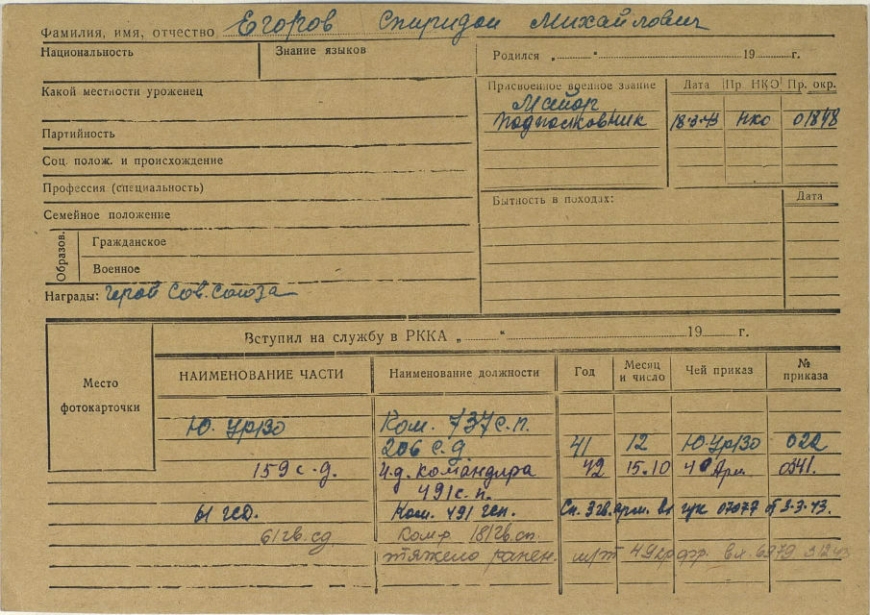 Фамилия, имя, отчество Егоров Спиридон Михайлович
Национальность
Знание языков
Родился „ “ 19 г.
Какой местности уроженец
Присвоенное военное звание Дата Пр. НКО Пр. окр.
Майор
Подполковник 18.3.43 НКО 01848
Партийность
Соц. полож. и происхождение
Профессия (специальность)
Семейное положение
Бытность в походах: Дата
Образов.
Гражданское
Военное
Награды: Герой Сов. Союза
Вступил на службу в РККА „ “ 19 г.
Место
фотокарточки
НАИМЕНОВАНИЕ ЧАСТИ Наименование должности Год Месяц и число Чей приказ № приказа
Ю. УрВО Ком. 737 с.п.
206 с.д. 41 12 Ю.УрВО 022
159 с.д. И.д. командира 42 15.10 Арм 0541.
491 с.п.
61 гсд. Ком. 491 Сп. 3 гв. арм. вх гук 07077 от 9.3.43.
61 гв. сд. ком-р 181 гв. сп.
тяжело ранен. фр. вх. 6979